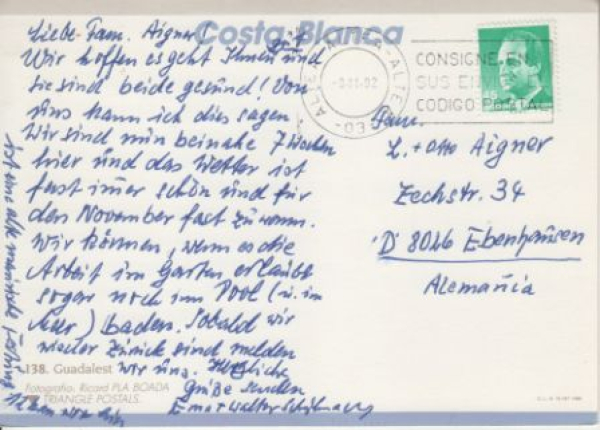 Costa Blanca
Liebe Fam. Aigner!
Wir hoffen es geht Ihnen gut und
sie sind beide gesund! Von
uns kann ich dies sagen
Wir sind nun beinahe 7 Wochen
hier und das Wetter ist
fast immer schön und für
den November fast zu warm.
Wir können, wenn es die
Arbeit im Garten erlaubt
sogar noch im Pool (u. im
Meer) baden. Sobald wir
wieder zurück sind melden
wir uns. Herzliche
Grüße senden
ist eine alte
138. Guadalest
Fotografía: Ricard PLA BOADA
TRIANGLE POSTALS.
CONSIGNE EN
SUS
CODIGO POSTAL
45
Fam.
L. + Otto Aigner
Zechstr. 34
D 8026 Ebenhausen
Alemania